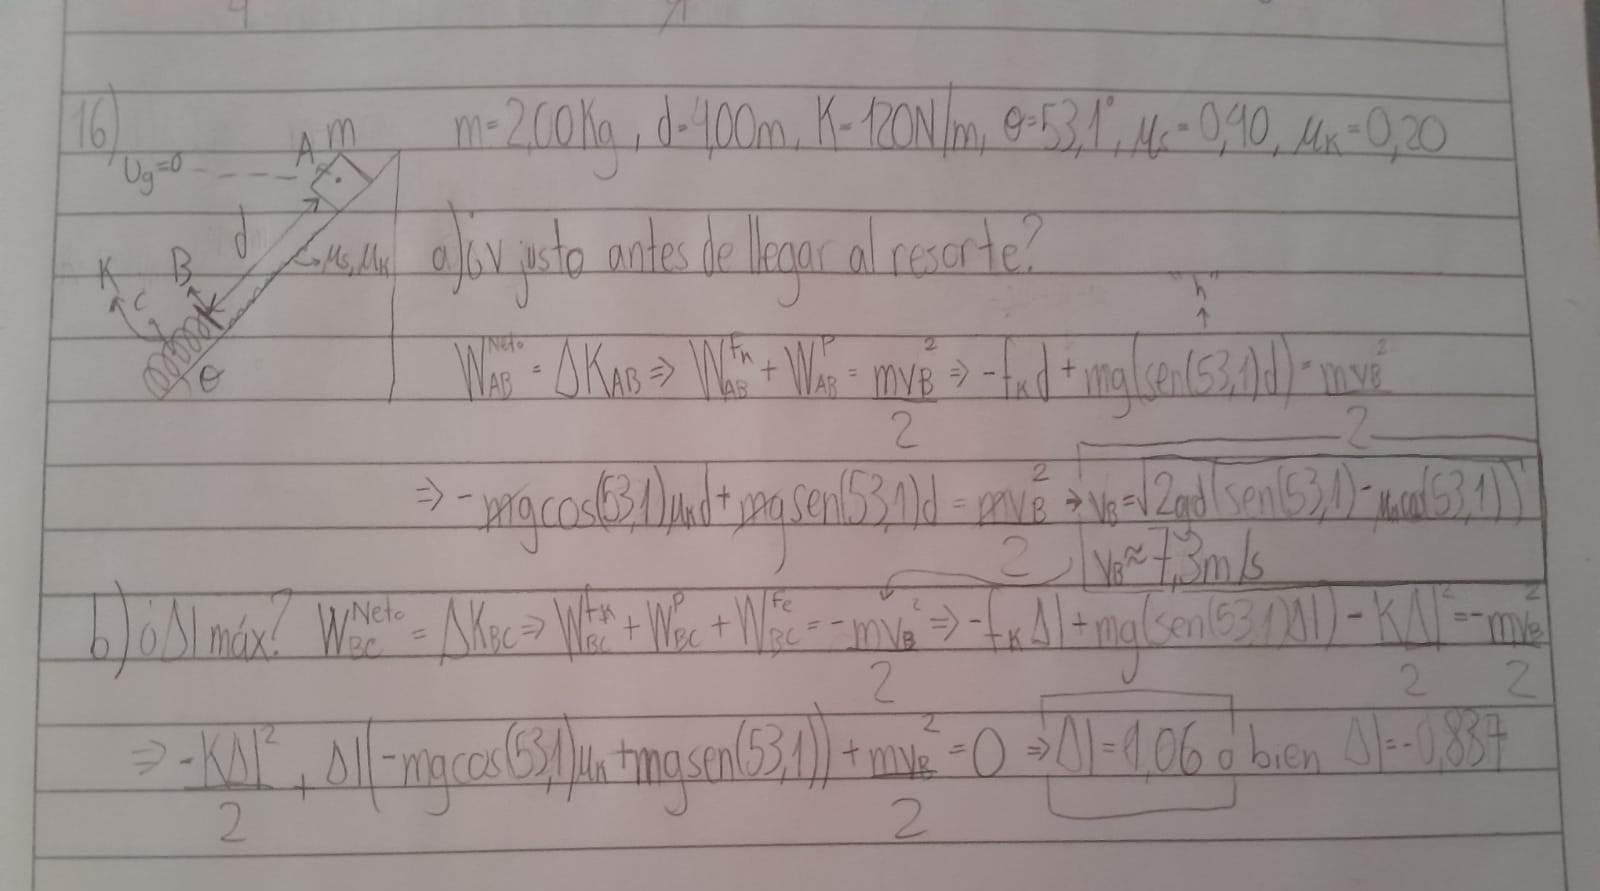 16) m=2,00Kg, d=4,00m, K=120N/m, θ=53,1°, μs=0,40, μK=0,20
A m
Ug=0
d
K C B
μs, μK
θ
a) ¿v justo antes de llegar al resorte?
"h"
W_AB^Neto = ΔK_AB ⇒ W_AB^fn + W_AB^P = mv_B²/2 ⇒ -f_K d + mg(sen(53,1)d) = mv_B²/2
⇒ -mgcos(53,1)μ_K d + mgsen(53,1)d = mv_B²/2 → v_B = √2gd(sen(53,1) - μ_K cos(53,1))
v_B ≈ 7,3m/s
b) ¿Δl máx? W_BC^Neto = ΔK_BC ⇒ W_BC^fK + W_BC^P + W_BC^Fe = -mv_B²/2 ⇒ -f_K Δl + mg(sen(53,1)Δl) - KΔl²/2 = -mv_B²/2
⇒ -KΔl²/2 + Δl(-mgcos(53,1)μ_K + mgsen(53,1)) + mv_B²/2 = 0 ⇒ Δl = 1,06 o bien Δl = -0,837